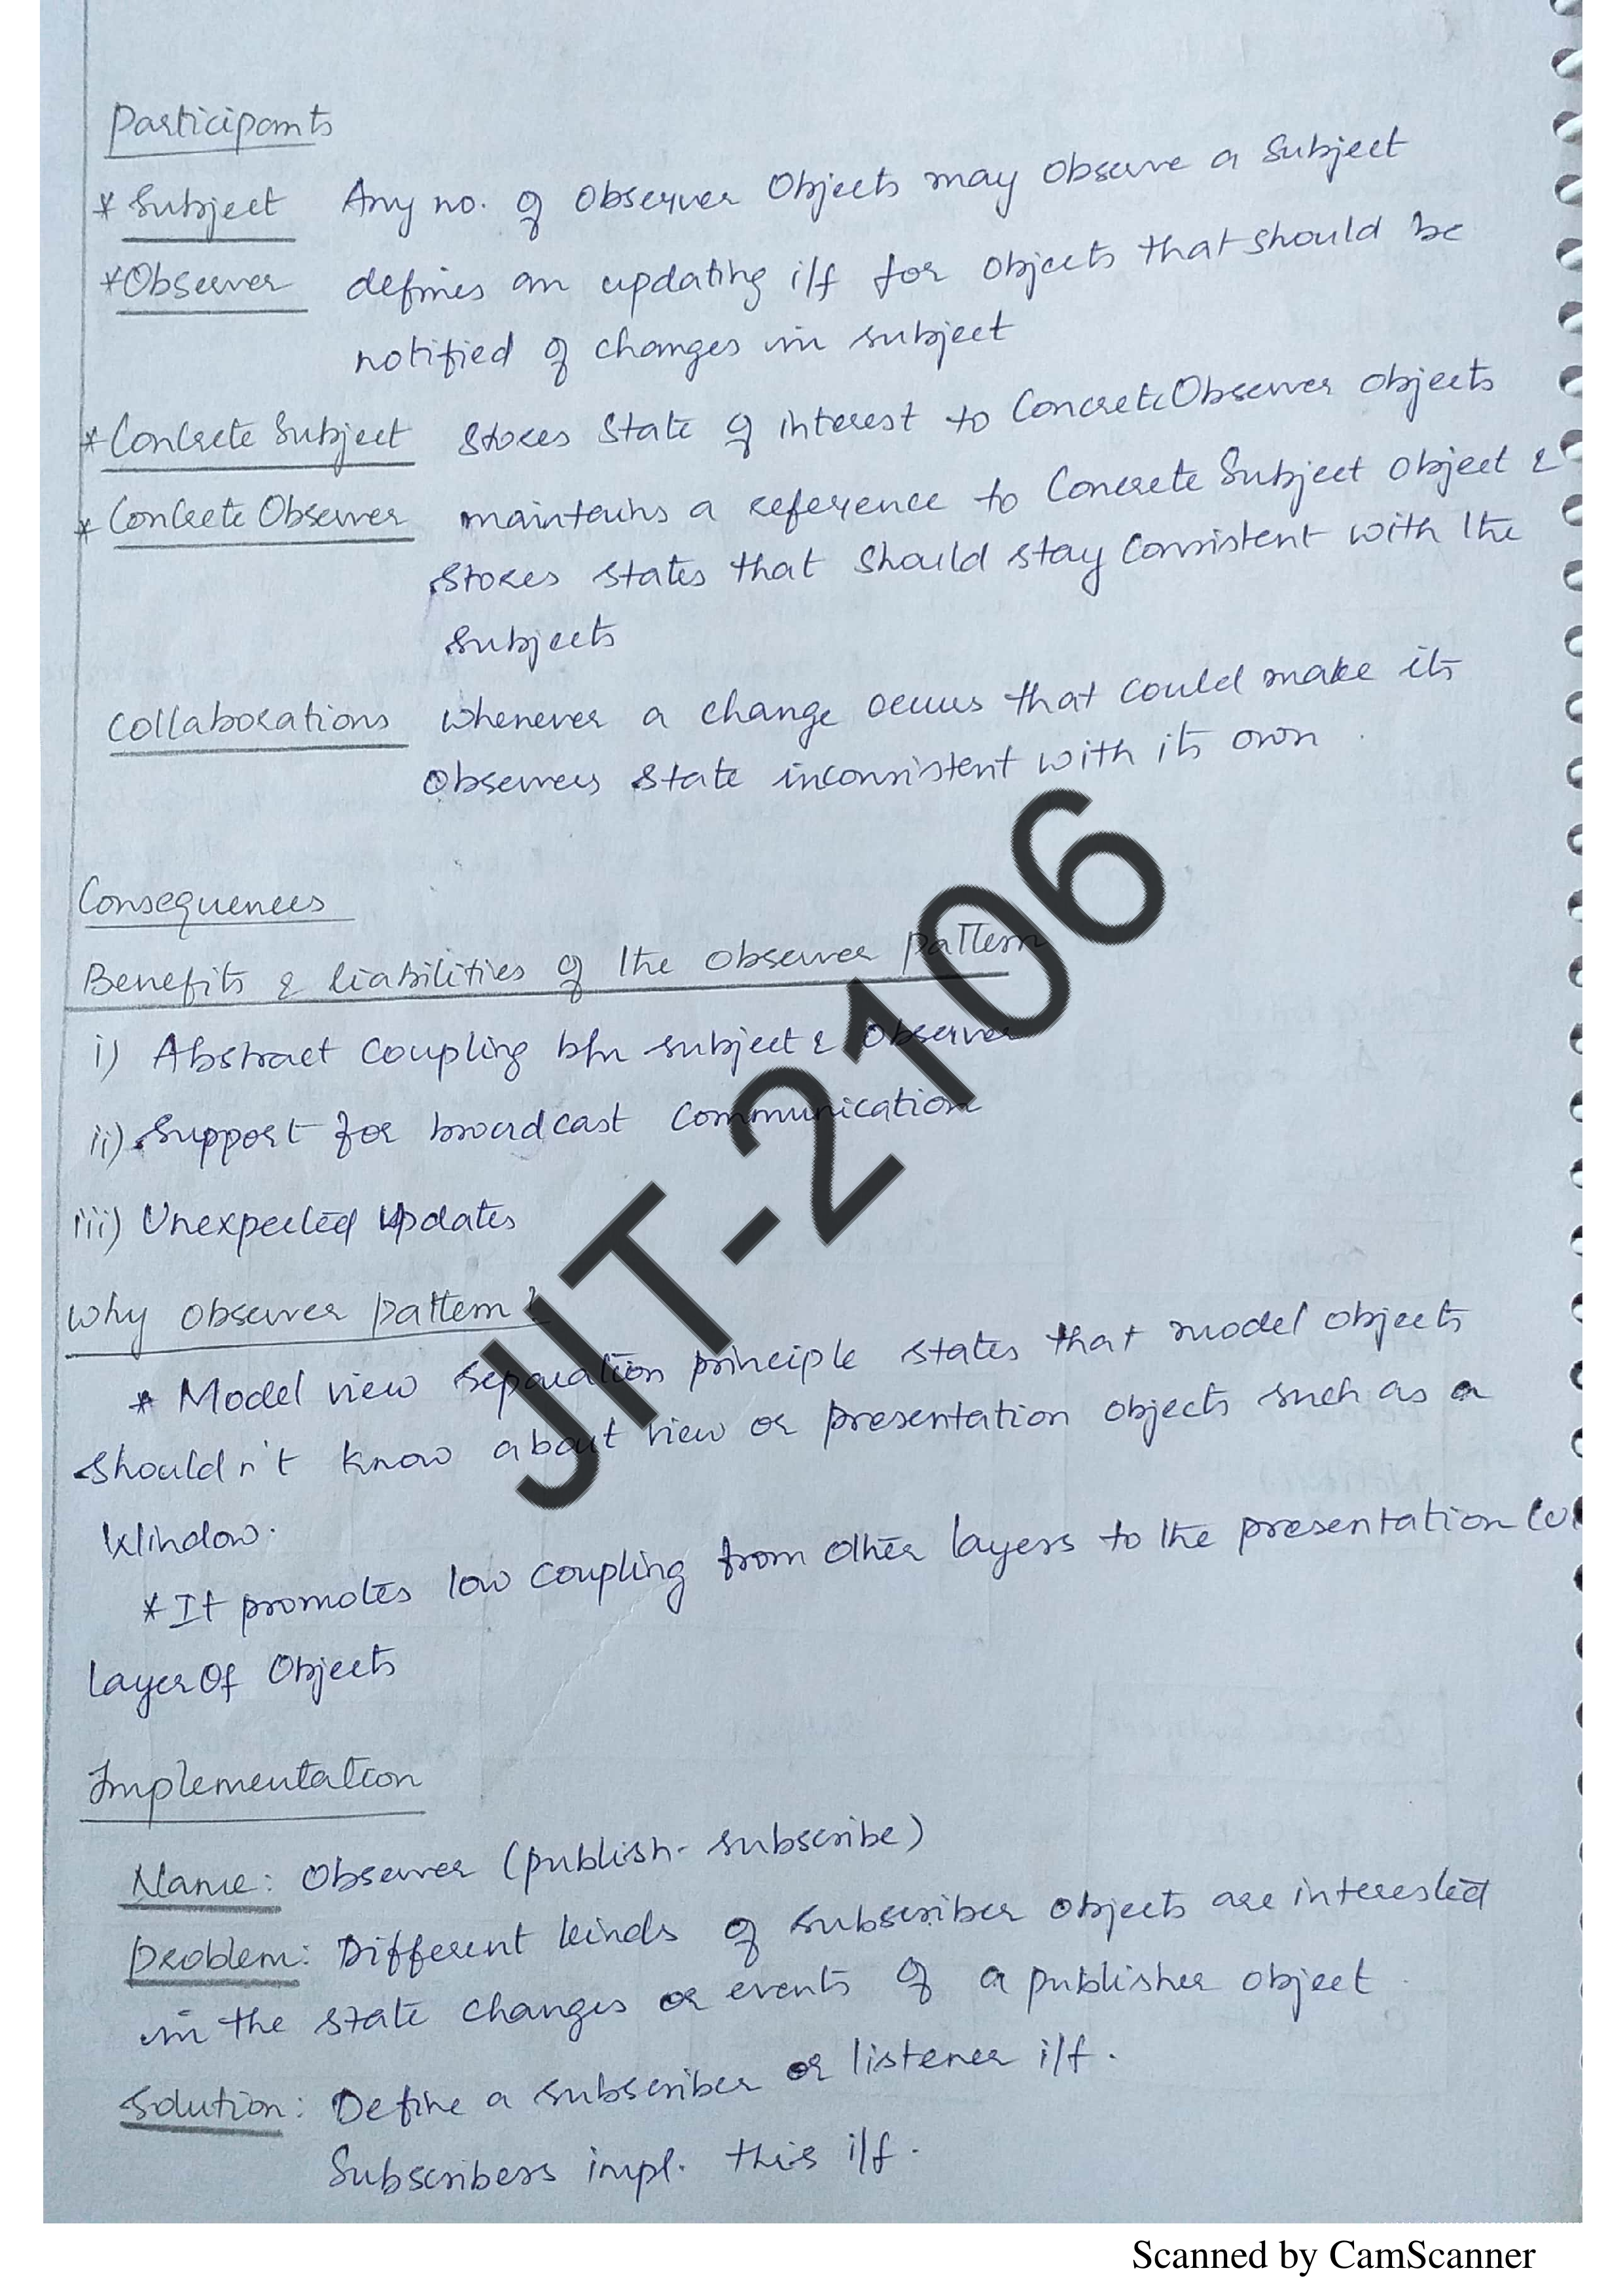 Participants
* Subject Any no. of Observer Objects may observe a Subject
* Observer defines an updating i/f for objects that should be
notified of changes in subject
* Concrete Subject stores state of interest to ConcreteObserver objects
* Concrete Observer maintains a reference to Concrete Subject object &
stores states that should stay consistent with the
subjects
Collaborations whenever a change occurs that could make its
Observers state inconsistent with its own.
Consequences
Benefits & liabilities of the observer pattern
i) Abstract coupling b/n subject & Observer
ii) Support for broadcast communication
iii) Unexpected updates
Why observer pattern?
* Model view separation principle states that model objects
shouldn't know about view or presentation objects such as a
Window.
* It promotes low coupling from other layers to the presentation
layer Of Objects
Implementation
Name: Observer (publish-subscribe)
Problem: Different kinds of subscriber objects are interested
in the state changes or events of a publisher object.
Solution: Define a subscriber or listener i/f.
Subscribers impl. this i/f.
JIT-2106
Scanned by CamScanner